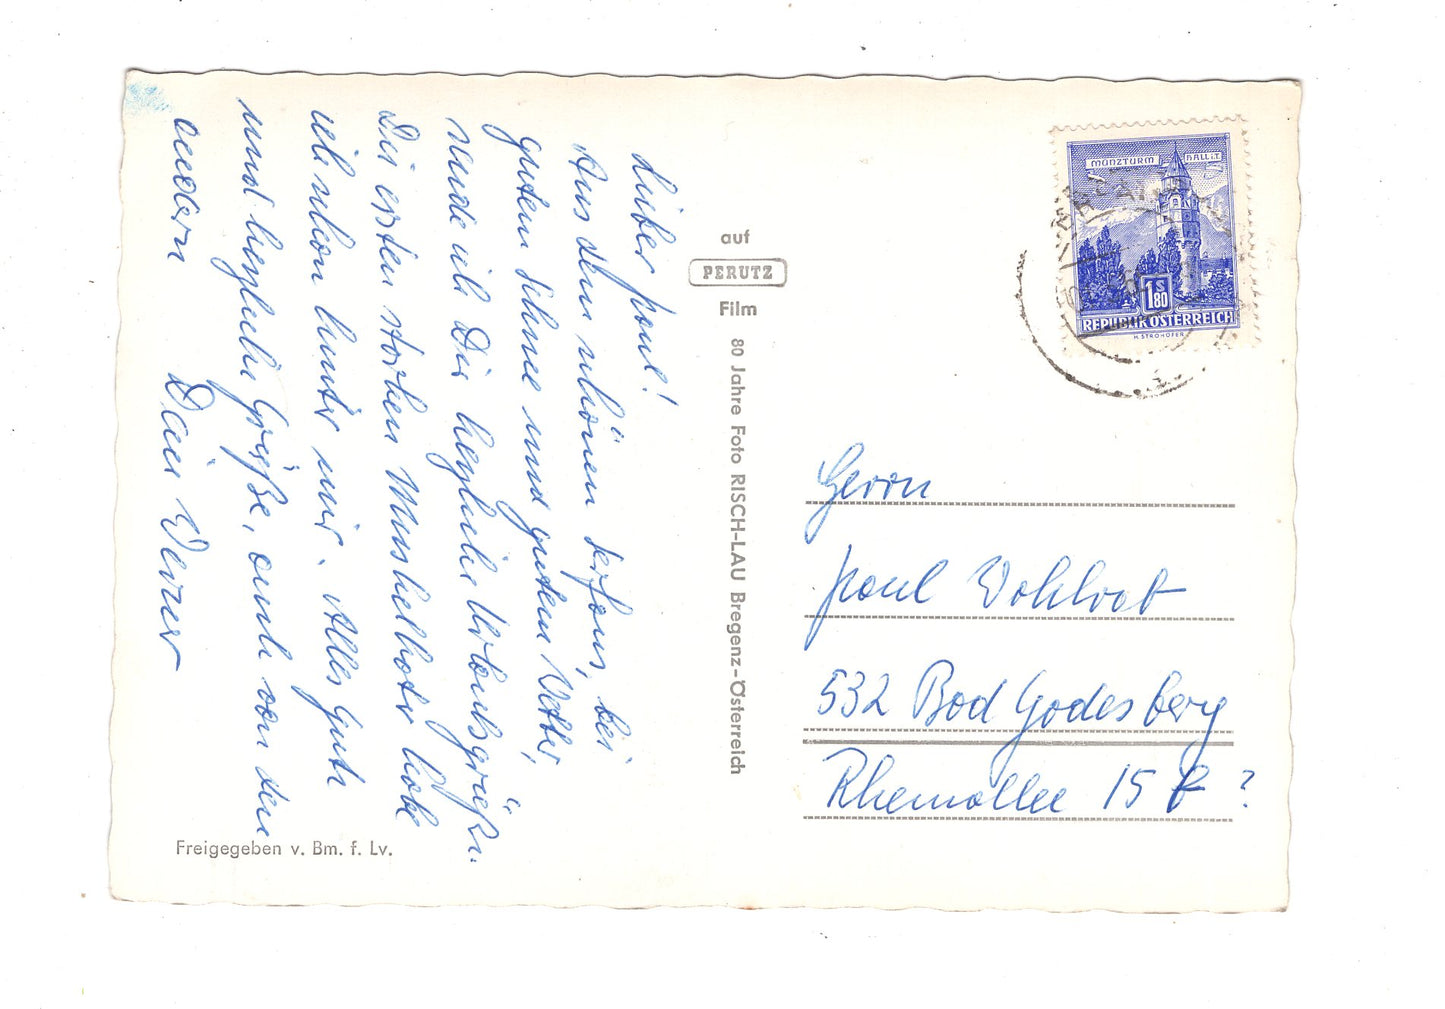 Lieber Paul!
Aus dem schönen Serfaus, bei
gutem Schnee und gutem Wetter,
sende ich Dir herzliche Urlaubsgrüße.
Die ersten starken Muskelkater habe
ich schon hinter mir. Alles Gute
und herzliche Grüße, auch von den
andern
Dein Werner
Freigegeben v. Bm. f. Lv.
auf
PERUTZ
Film
80 Jahre Foto RISCH-LAU Bregenz-Österreich
MÜNZTURM HALL i.T.
1 S 80
REPUBLIK ÖSTERREICH
H. STROHOFER
Herrn
Paul
532 Bad Godesberg
Rheinallee 15 ?